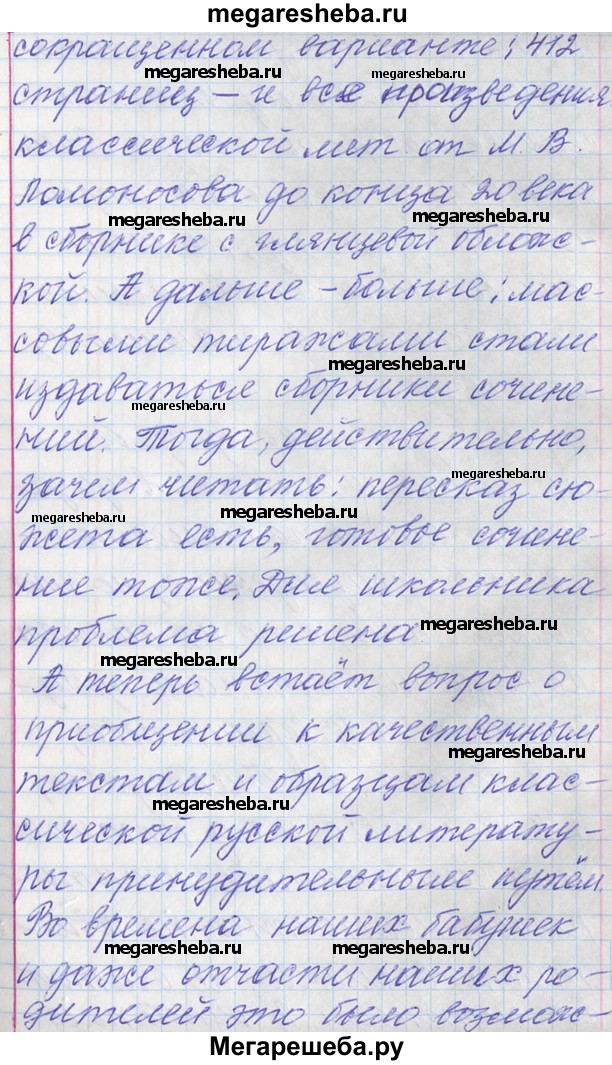 megaresheba.ru
сокращенном варианте; 412
megaresheba.ru megaresheba.ru
страниц – и все произведения
классической лит. от М. В.
Ломоносова до конца 20 века
megaresheba.ru megaresheba.ru
в сборнике с глянцевой облож-
кой. А дальше – больше; мас-
совыми тиражами стали
megaresheba.ru
издаваться сборники сочине-
megaresheba.ru
ний. Тогда, действительно,
megaresheba.ru
зачем читать: пересказ сю-
megaresheba.ru megaresheba.ru
жета есть, готовое сочине-
ние тоже. Для школьника
megaresheba.ru
проблема решена.
megaresheba.ru
А теперь встаёт вопрос о
приобщении к качественным
megaresheba.ru
текстам и образцам клас-
megaresheba.ru
сической русской литерату-
ры принудительным путём.
Во времена наших бабушек
megaresheba.ru megaresheba.ru
и даже отчасти наших ро-
дителей это было возмож-
Мегарешеба.ру